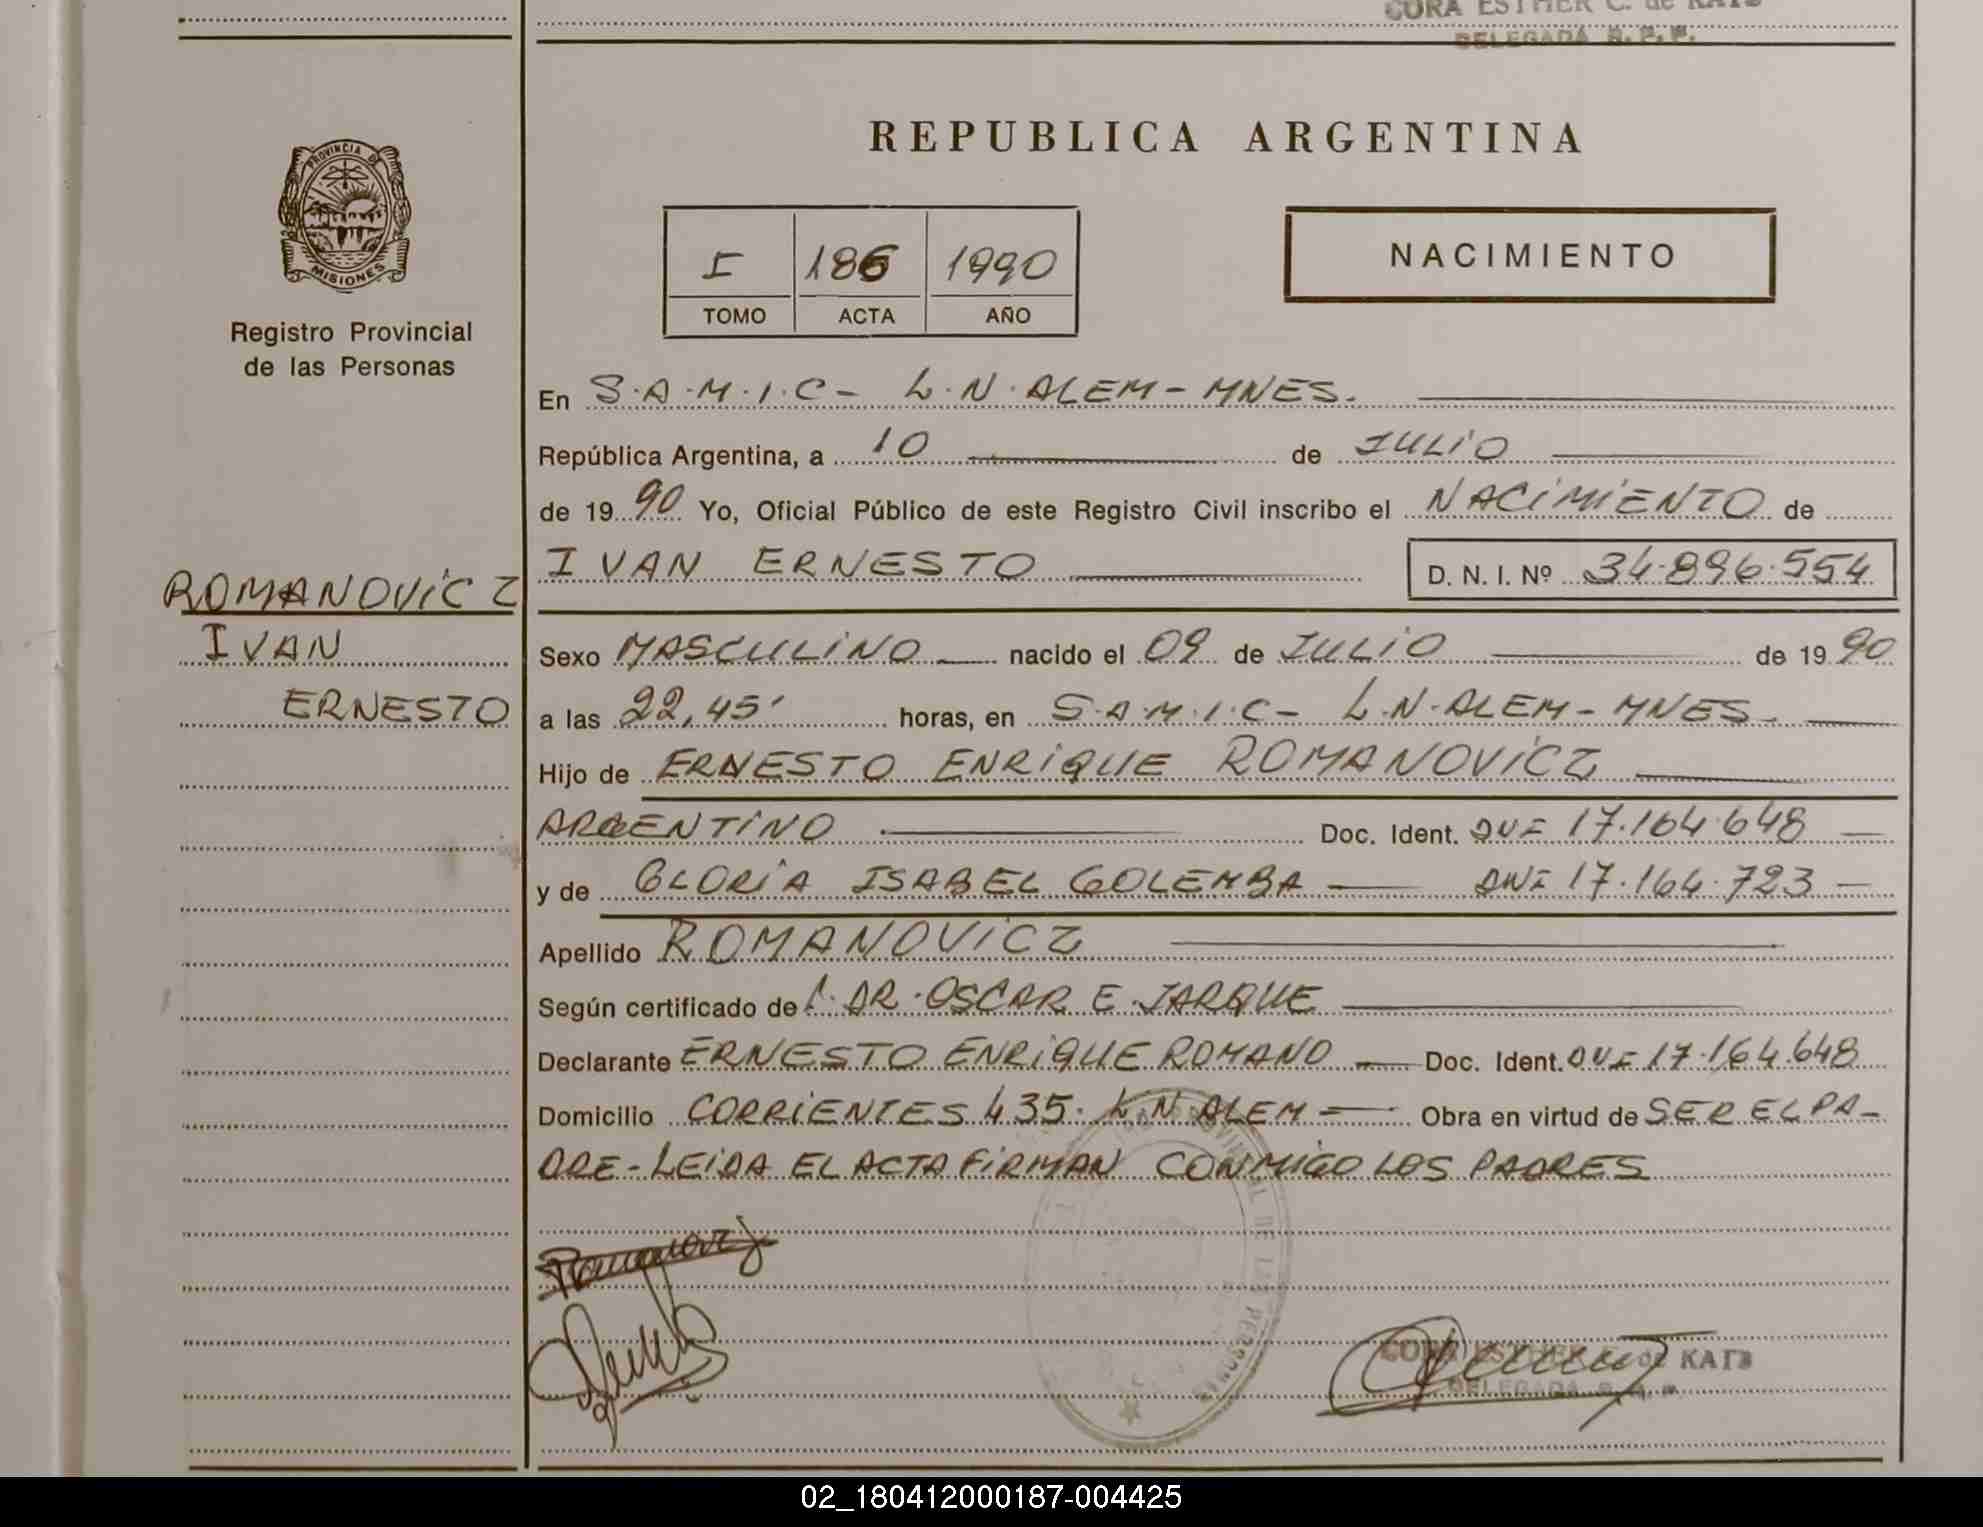 CORA ESTHER C. de KATZ
DELEGADA R. P. P.
PROVINCIA DE
MISIONES
Registro Provincial
de las Personas
REPUBLICA ARGENTINA
I 186 1990
TOMO ACTA AÑO
NACIMIENTO
En S.A.M.I.C- L.N. ALEM- MNES.
República Argentina, a 10 de JULIO
de 1990 Yo, Oficial Público de este Registro Civil inscribo el NACIMIENTO de
IVAN ERNESTO D. N. I. Nº 34.896.554
ROMANOVICZ
IVAN
ERNESTO
Sexo MASCULINO nacido el 09 de JULIO de 1990
a las 22,45' horas, en S.A.M.I.C- L.N.ALEM- MNES.
Hijo de ERNESTO ENRIQUE ROMANOVICZ
ARGENTINO Doc. Ident. DNI 17.164.648
y de GLORIA ISABEL GOLEMBA DNI 17.164.723
Apellido ROMANOVICZ
Según certificado de DR. OSCAR E. JARQUE
Declarante ERNESTO ENRIQUE ROMANO Doc. Ident. DNI 17.164.648
Domicilio CORRIENTES 435. L.N ALEM Obra en virtud de SER EL PA-
DRE- LEIDA EL ACTA FIRMAN CONMIGO LOS PADRES
CORA ESTHER C. de KATZ
DELEGADA R. P. P.
02_180412000187-004425